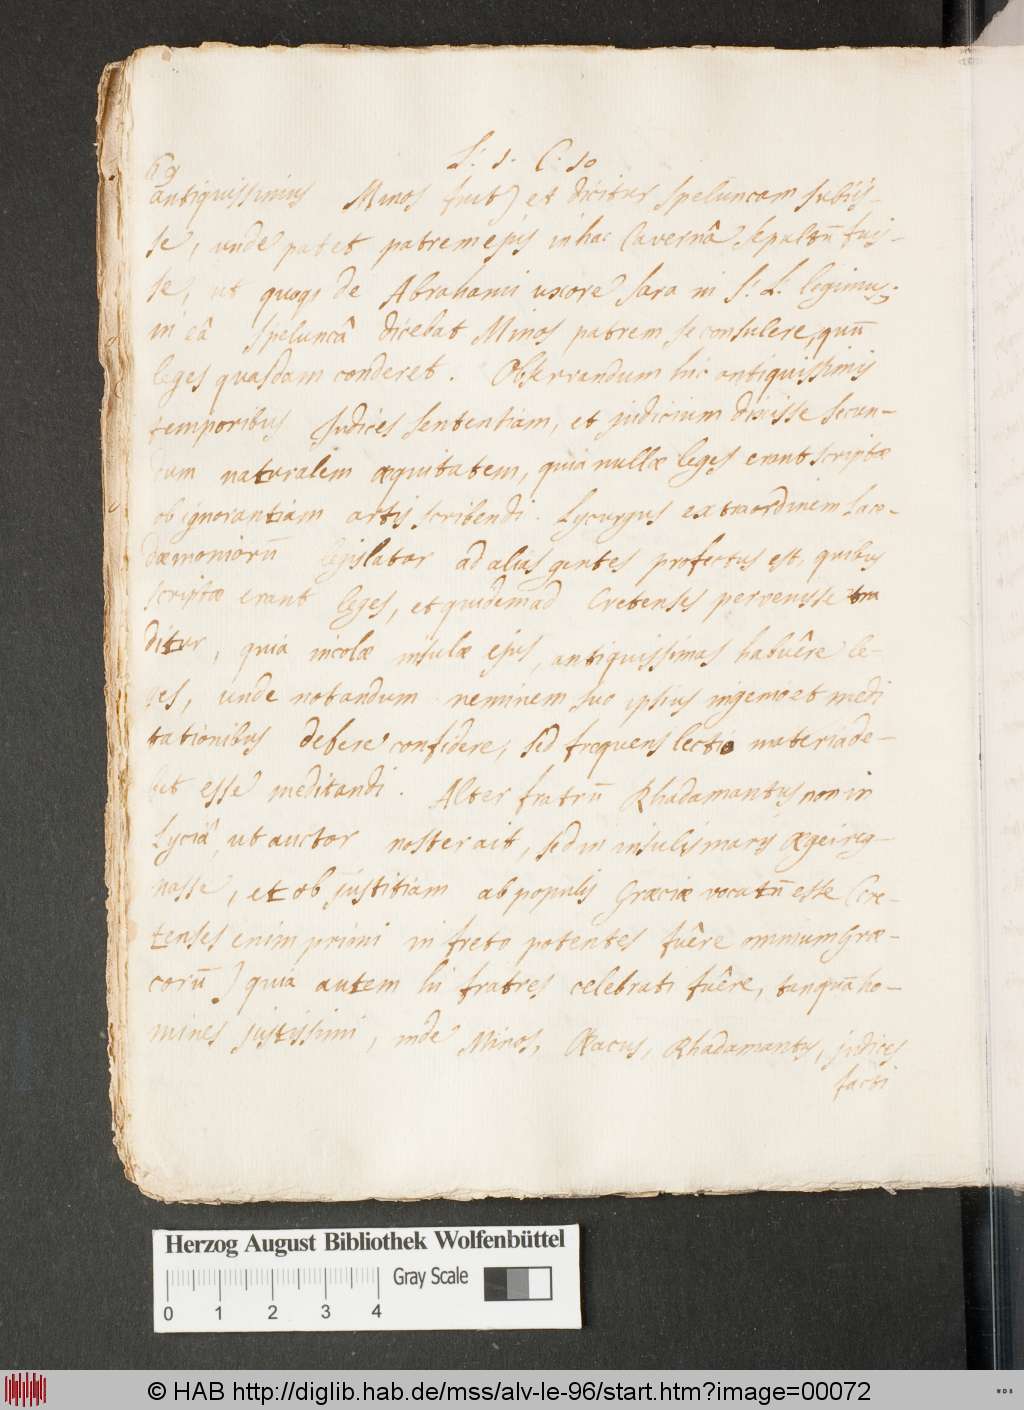 69
L: 1. C. 10
antiquissimus Minos fuit) et dicitur speluncam subiis-
se, unde patet patrem ejus in hac Cavernâ sepultū fuis-
se, ut quoqs de Abrahami uxore Sara in S: L: legimus;
in eâ speluncâ dicebat Minos patrem se consulere, quū
leges quasdam conderet. Observandum hic antiquissimis
temporibus Judices sententiam, et judicium dixisse secun-
dum naturalem æquitatem, quia nullæ leges erant scriptæ
ob ignorantiam artis scribendi. Lycurgus extraordinem Lace-
dæmoniorū legislator ad alias gentes profectus est, quibus
scriptæ erant leges, et quidem ad Cretenses pervenisse tra
ditur, quia incolæ insulæ ejus, antiquissimas habuêre le-
ges, unde notandum neminem suo ipsius ingenio et medi
tationibus debere confidere, sed frequens lectio materia de-
bet esse meditandi. Alter fratrū Rhadamantus non in
Lyciâ, ut auctor noster ait, sed in insulis maris Ægei reg-
nasse, et ob justitiam ab populis Græciæ vocatū esse (Cre-
tenses enim primi in freto potentes fuêre omnium Græ-
corū) quia autem hi fratres celebrati fuêre, tanquā ho-
mines justissimi, inde Minos, Æacus, Rhadamantus, judices
facti
Herzog August Bibliothek Wolfenbüttel
Gray Scale
0 1 2 3 4
© HAB http://diglib.hab.de/mss/alv-le-96/start.htm?image=00072